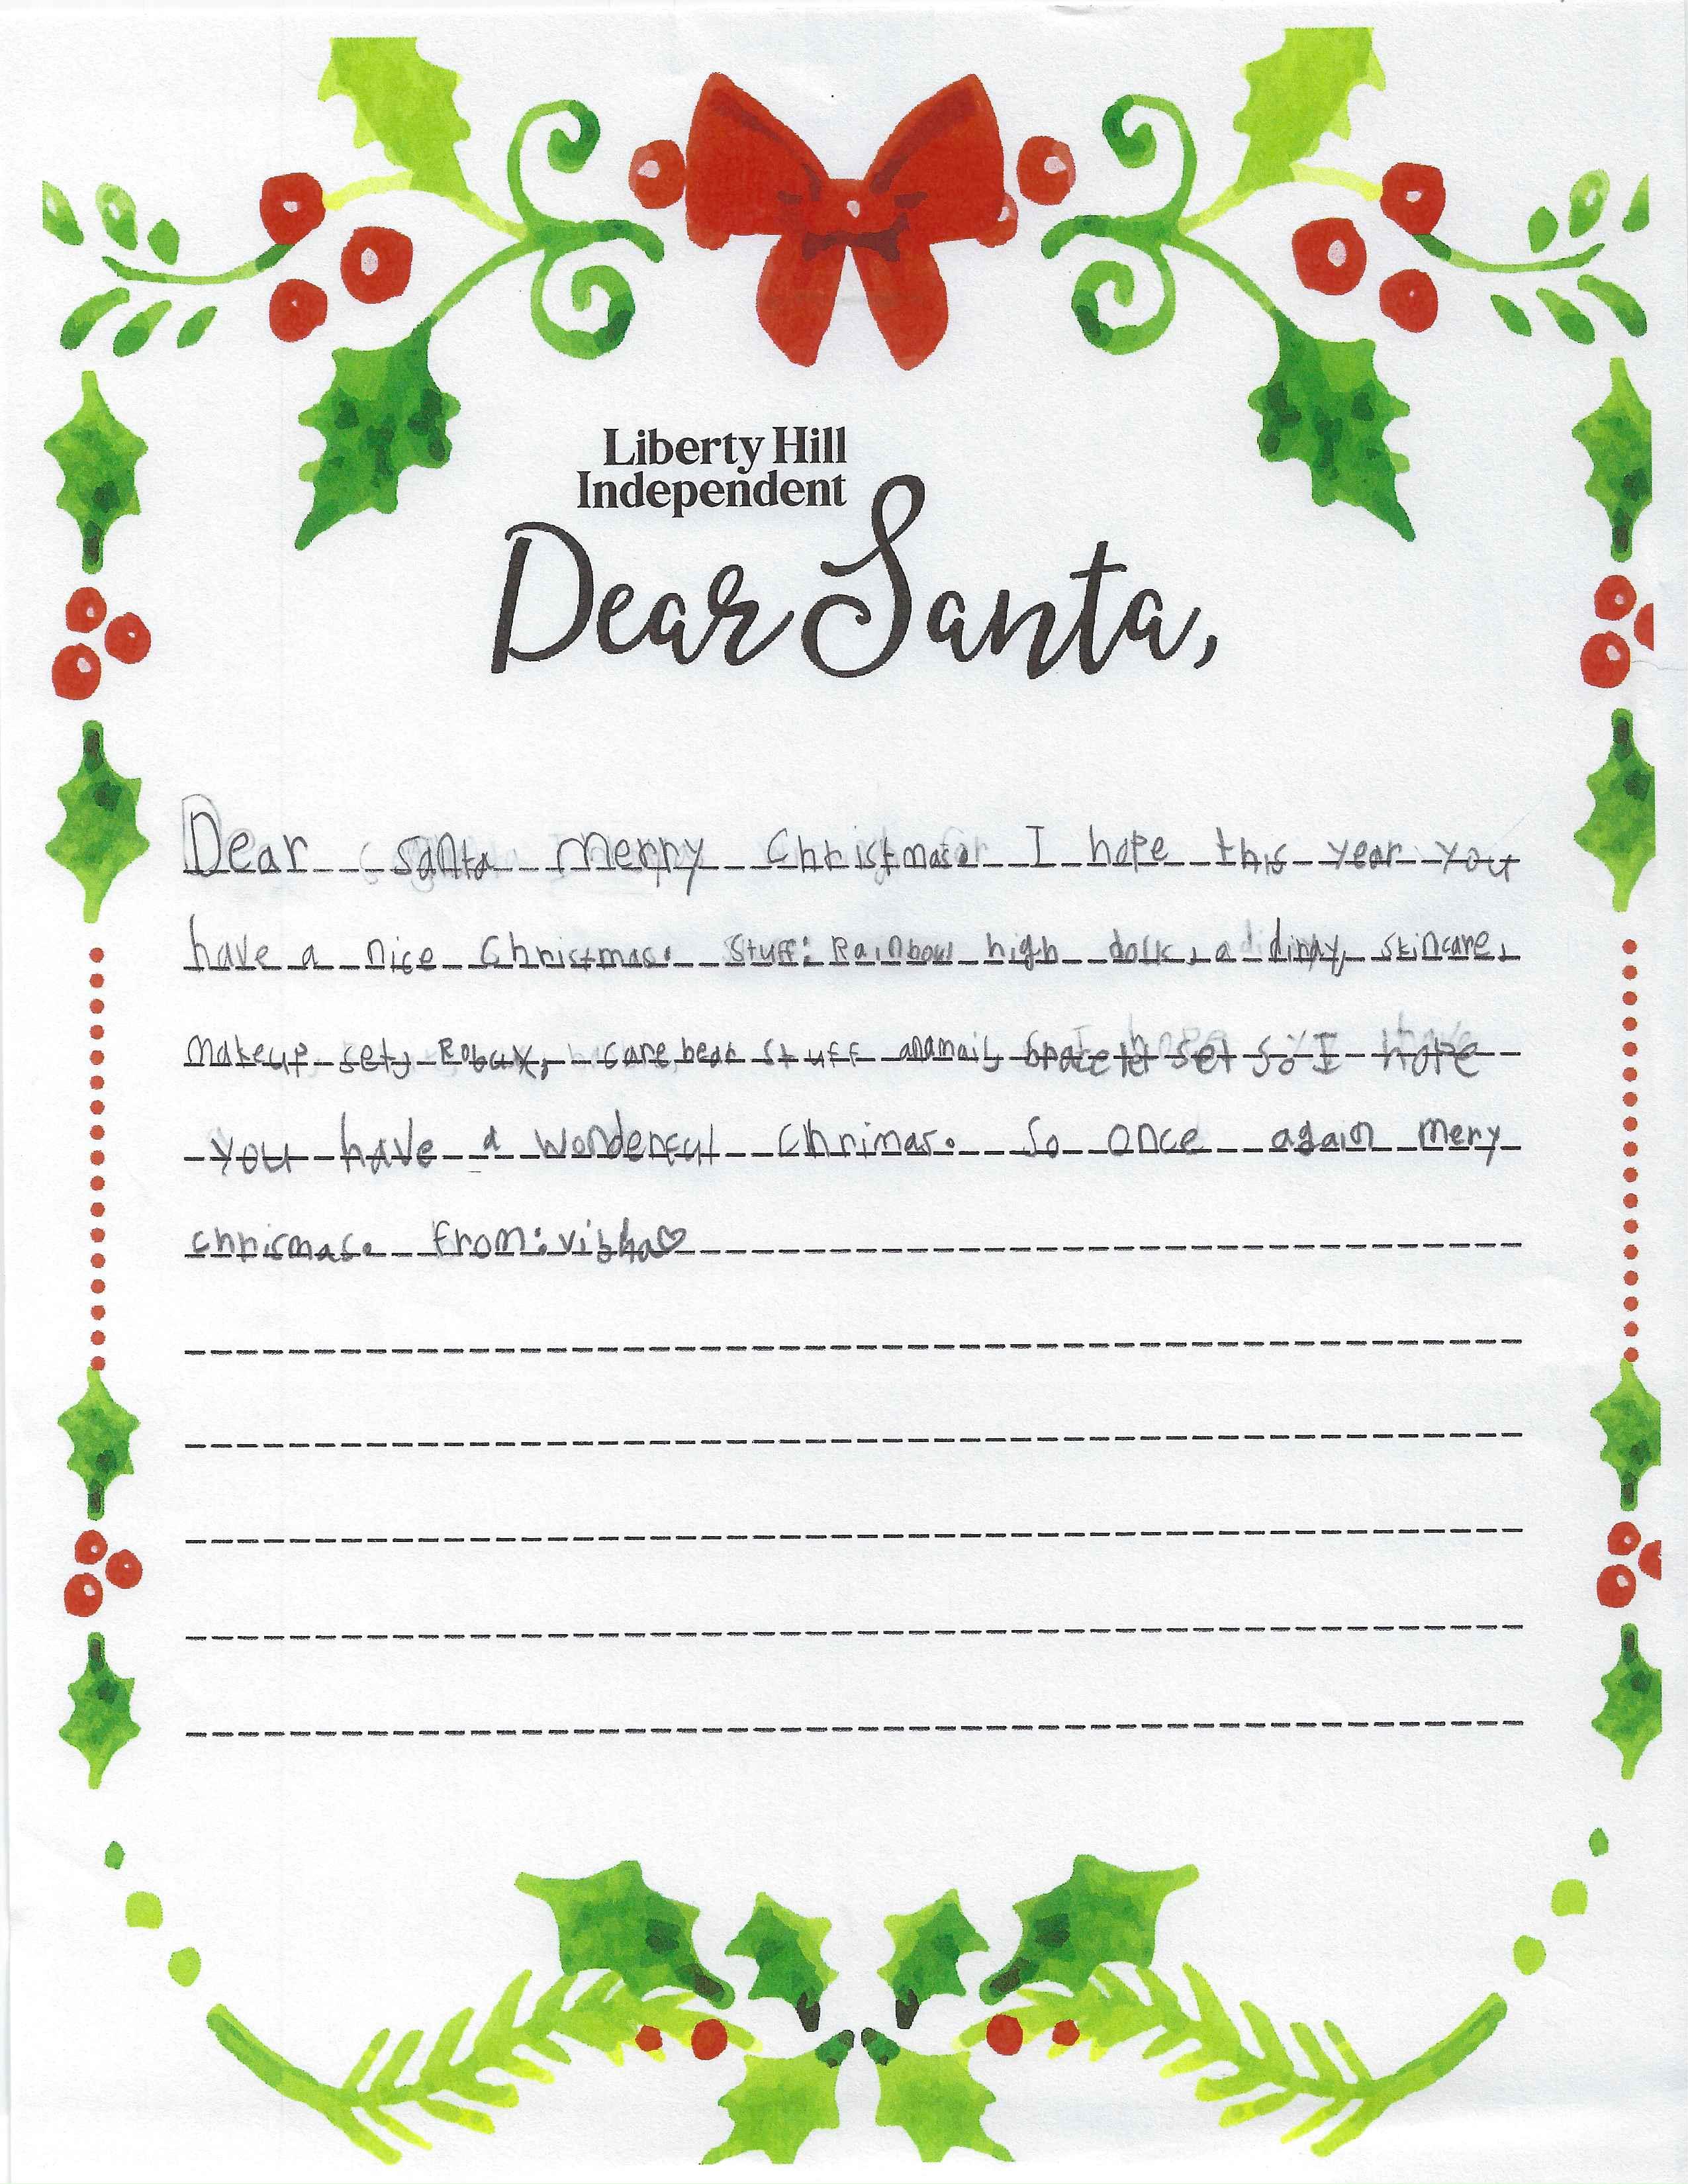 Liberty Hill
Independent
Dear Santa,
Dear santa merry Christmas. I hope this year you
have a nice Christmas. Stuff: Rainbow high dolls, a dirndy, skincare,
Makeup set, Robux, care bear stuff and bracelet set so I hope
you have a wonderful Chrimas. So once again mery
chrismas. From: vibha♡